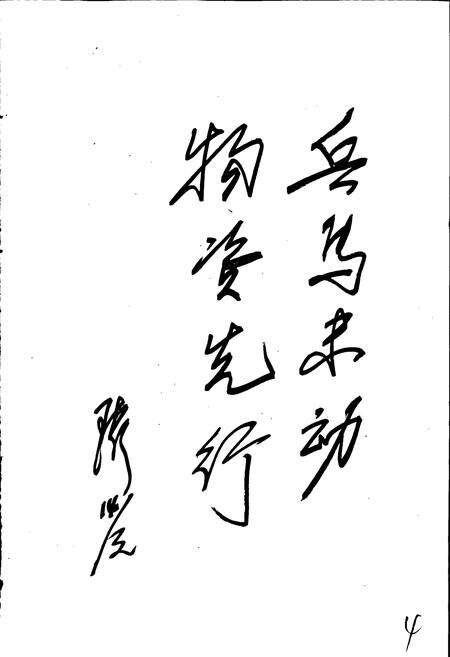 兵马未动
物资先行
4